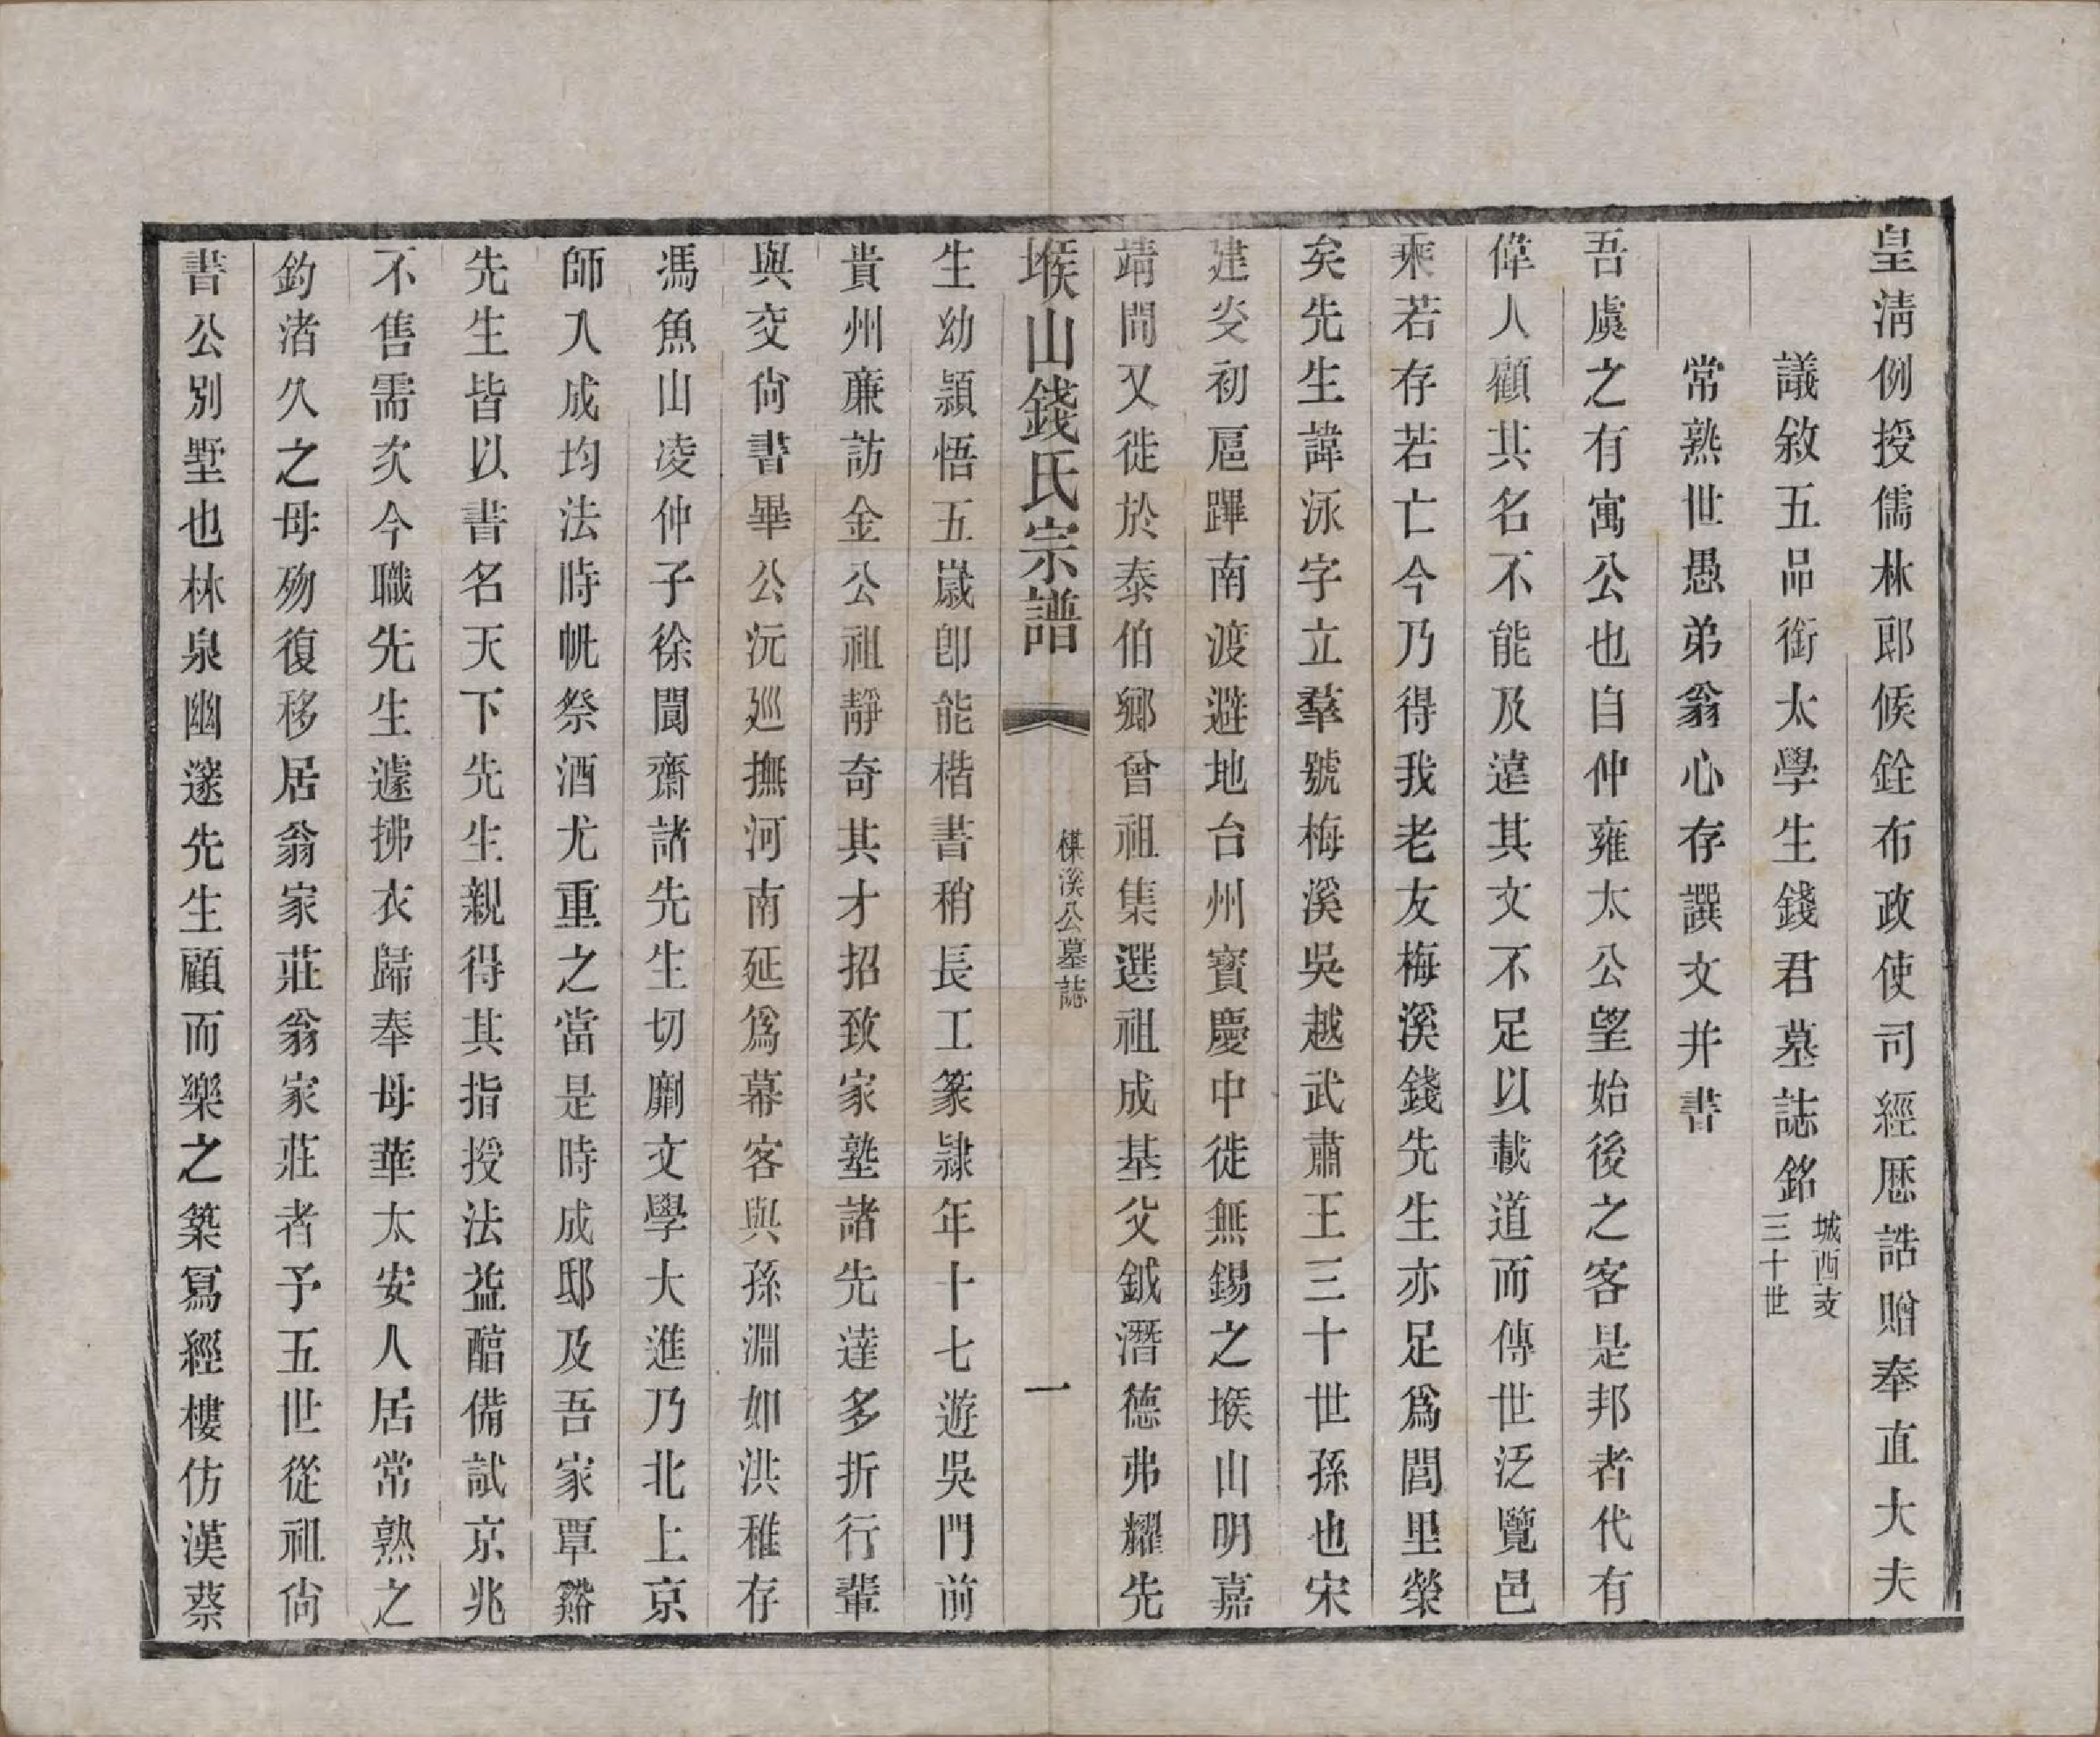 皇淸例授儒林郎候銓布政使司經厯誥贈奉直大夫
議敘五品銜太學生錢君墓誌銘城西支三十世
常熟世愚弟翁心存譔文并書
吾虞之有寓公也自仲雍太公望始後之客是邦者代有
偉人顧其名不能及遠其文不足以載道而傳世泛覽邑
乘若存若亡今乃得我老友梅溪錢先生亦足爲閭里榮
矣先生諱泳字立羣號梅溪吳越武肅王三十世孫也宋
建炎初扈蹕南渡避地台州寳慶中徙無錫之堠山明嘉
靖間又徙於泰伯鄉曾祖集選祖成基父鉞潛德弗耀先
堠山錢氏宗譜
楳溪公墓誌
一
生幼穎悟五嵗卽能楷書稍長工篆隷年十七遊吳門前
貴州廉訪金公祖靜奇其才招致家塾諸先達多折行輩
與交尙書畢公沅廵撫河南延爲幕客與孫淵如洪稚存
馮魚山凌仲子徐閬齋諸先生切劘文學大進乃北上京
師入成均法時帆祭酒尤重之當是時成邸及吾家覃谿
先生皆以書名天下先生親得其指授法益酷備試京兆
不售需次今職先生遽拂衣歸奉母華太安人居常熟之
釣渚久之母殁復移居翁家莊翁家莊者予五世從祖尙
書公別墅也林泉幽邃先生顧而樂之築寫經樓仿漢蔡